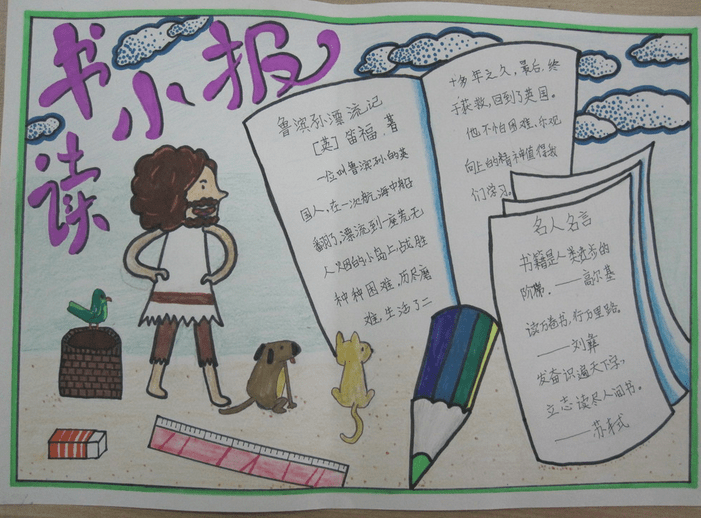 读书小报
鲁滨孙漂流记
[英] 笛福.著
一位叫鲁滨孙的英
国人,在一次航海中船
翻了,漂流到一座荒无
人烟的小岛上,战胜
种种困难,历尽磨
难,生活了二
十多年之久,最后,终
于获救,回到了英国。
他不怕困难、乐观
向上的精神值得我
们学习。
名人名言
书籍是人类进步的
阶梯。——高尔基
读万卷书,行万里路。
——刘彝
发奋识遍天下字,
立志读尽人间书。
——苏轼